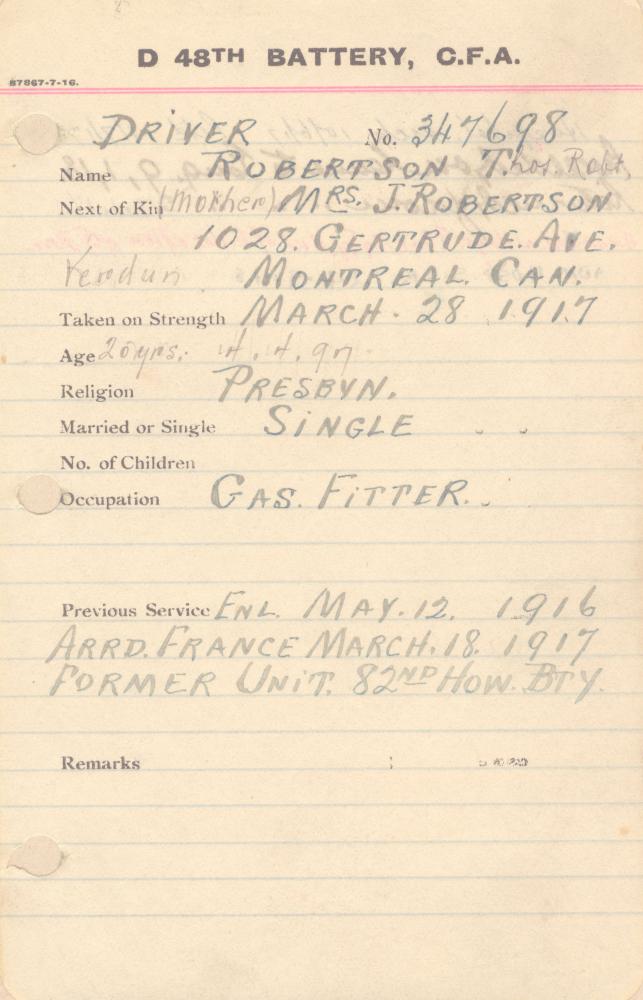 D 48TH BATTERY, C.F.A.
87867-7-16.
DRIVER No. 347698
Name ROBERTSON Thos. Robt.
Next of Kin (Mother) MRS. J. ROBERTSON
1028. GERTRUDE. AVE.
Verdun. MONTREAL. CAN.
Taken on Strength MARCH. 28 1917
Age 20 yrs. 4.4.97
Religion PRESBYN.
Married or Single SINGLE
No. of Children
Occupation GAS. FITTER.
Previous Service ENL. MAY. 12. 1916
ARRD. FRANCE MARCH. 18. 1917
FORMER UNIT. 82ND HOW. BTY.
Remarks